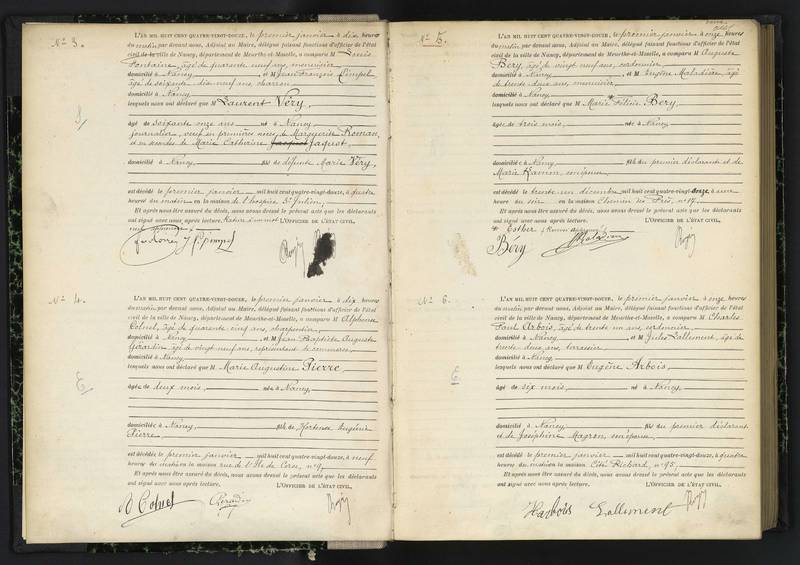 N° 3.
L'AN MIL HUIT CENT QUATRE-VINGT-DOUZE, le premier janvier à dix heures
du matin, par devant nous, Adjoint au Maire, délégué faisant fonctions d'officier de l'état
civil de la ville de Nancy, département de Meurthe-et-Moselle, a comparu M Louis
Fontaine, âgé de quarante neuf ans, menuisier
domicilié à Nancy et M Jean François
âgé de soixante dix neuf ans, charron
domicilié à Nancy
lesquels nous ont déclaré que M Laurent Véry,
âgé de soixante onze ans né à Nancy
journalier, veuf en premières noces, de Marguerite Roman,
et en secondes de Marie Catherine Jaquot
domicilié à Nancy, fils de défunte Marie Véry
est décédé le premier janvier mil huit cent quatre-vingt-douze, à quatre
heures du matin en la maison de l'hospice St Julien.
Et après nous être assuré du décès, nous avons dressé le présent acte que les déclarants
ont signé avec nous, après lecture. L'OFFICIER DE L'ÉTAT CIVIL,
N° 4.
L'AN MIL HUIT CENT QUATRE-VINGT-DOUZE, le premier janvier à dix heures
du matin, par devant nous, Adjoint au Maire, délégué faisant fonctions d'officier de l'état
civil de la ville de Nancy, département de Meurthe-et-Moselle, a comparu M Alphonse
Colnel, âgé de quarante cinq ans, charpentier
domicilié à Nancy et M Jean Baptiste Auguste
Gérardin âgé de vingt neuf ans, représentant de commerce
domicilié à Nancy
lesquels nous ont déclaré que M Marie Augustine Pierre
âgée de deux mois, née à Nancy,
domiciliée à Nancy fille de Hortense Eugénie
Pierre
est décédée le premier janvier mil huit cent quatre-vingt-douze, à neuf
heures du matin en la maison rue de l'Ile de Corse, n° 9,
Et après nous être assuré du décès, nous avons dressé le présent acte que les déclarants
ont signé avec nous, après lecture. L'OFFICIER DE L'ÉTAT CIVIL,
Colnel Gérardin
N° 5.
L'AN MIL HUIT CENT QUATRE-VINGT-DOUZE, le premier janvier à onze heures
du matin, par devant nous, Adjoint au Maire, délégué faisant fonctions d'officier de l'état
civil de la ville de Nancy, département de Meurthe-et-Moselle, a comparu M Auguste
Béry, âgé de vingt neuf ans, cordonnier
domicilié à Nancy et M Eugène Maladière, âgé
de trente deux ans, menuisier
domicilié à Nancy
lesquels nous ont déclaré que M Marie Félicie * Béry
âgée de trois mois, née à Nancy,
domiciliée à Nancy fille du premier déclarant et de
Marie Ramon, son épouse
est décédée le trente un décembre mil huit cent quatre-vingt-onze à une
heure du soir en la maison Chemin des Prés, n° 17.
Et après nous être assuré du décès, nous avons dressé le présent acte que les déclarants
ont signé avec nous après lecture. L'OFFICIER DE L'ÉTAT CIVIL,
* Esther
Béry Maladière
N° 6.
L'AN MIL HUIT CENT QUATRE-VINGT-DOUZE, le premier janvier à onze heures
du matin, par devant nous, Adjoint au Maire, délégué faisant fonctions d'officier de l'état
civil de la ville de Nancy, département de Meurthe-et-Moselle, a comparu M Charles
Paul Arbois, âgé de trente un ans, cordonnier
domicilié à Nancy et M Jules Lallement, âgé de
trente deux ans, terrassier
domicilié à Nancy
lesquels nous ont déclaré que M Eugène Arbois
âgé de six mois, né à Nancy,
domicilié à Nancy fils du premier déclarant
et de Joséphine Magron, son épouse
est décédé le premier janvier mil huit cent quatre-vingt-douze, à quatre
heures du matin en la maison Cité Richard, n° 95,
Et après nous être assuré du décès, nous avons dressé le présent acte que les déclarants
ont signé avec nous après lecture. L'OFFICIER DE L'ÉTAT CIVIL,
Harbois Lallement